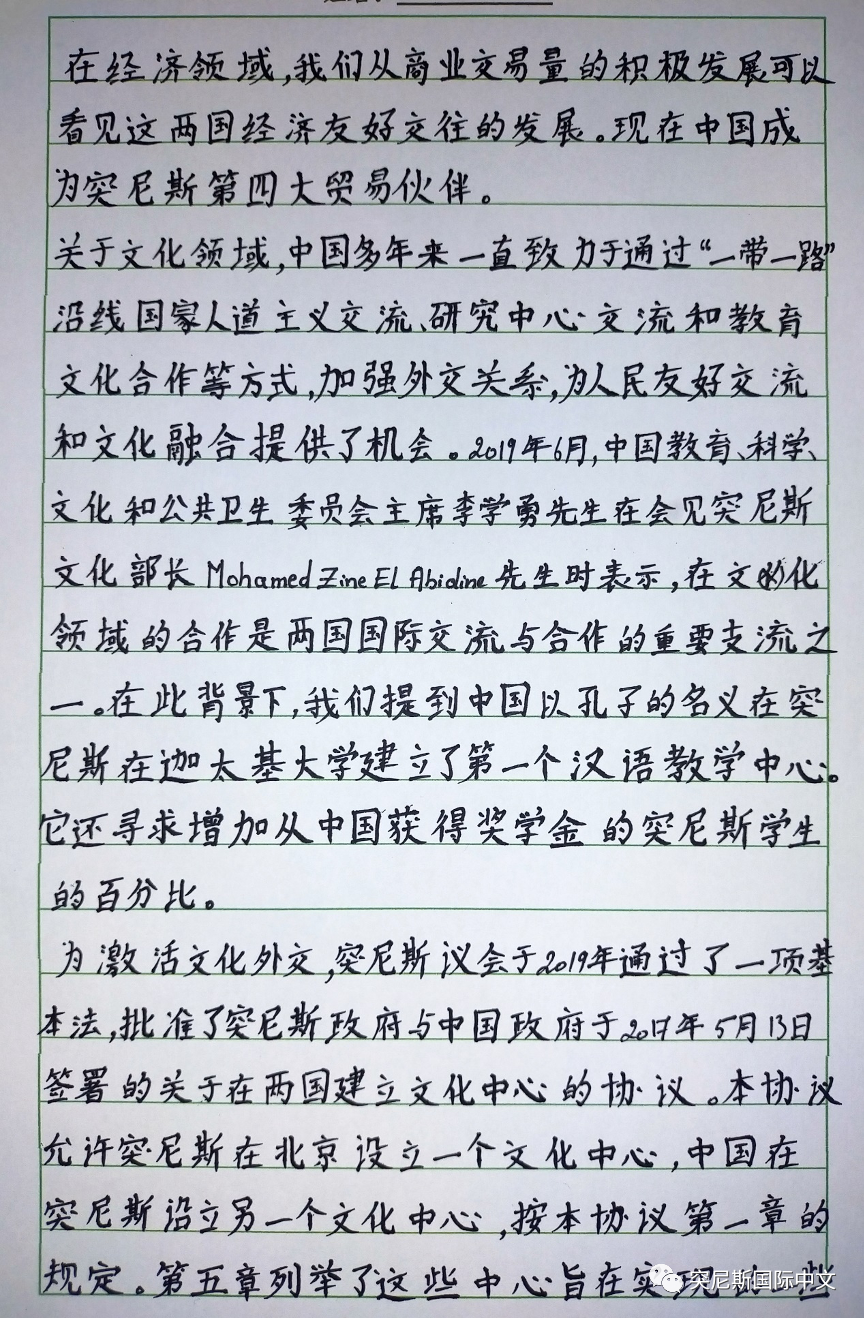 在经济领域,我们从商业交易量的积极发展可以
看见这两国经济友好交往的发展。现在中国成
为突尼斯第四大贸易伙伴。
关于文化领域,中国多年来一直致力于通过“一带一路”
沿线国家人道主义交流、研究中心交流和教育
文化合作等方式,加强外交关系,为人民友好交流
和文化融合提供了机会。2019年6月,中国教育、科学、
文化和公共卫生委员会主席李学勇先生在会见突尼斯
文化部长Mohamed Zine El Abidine先生时表示,在文化
领域的合作是两国国际交流与合作的重要支流之
一。在此背景下,我们提到中国以孔子的名义在突
尼斯在迦太基大学建立了第一个汉语教学中心。
它还寻求增加从中国获得奖学金的突尼斯学生
的百分比。
为激活文化外交,突尼斯议会于2019年通过了一项基
本法,批准了突尼斯政府与中国政府于2017年5月13日
签署的关于在两国建立文化中心的协议。本协议
允许突尼斯在北京设立一个文化中心,中国在
突尼斯设立另一个文化中心,按本协议第一章的
规定。第五章列举了这些中心旨在实现的一些
突尼斯国际中文